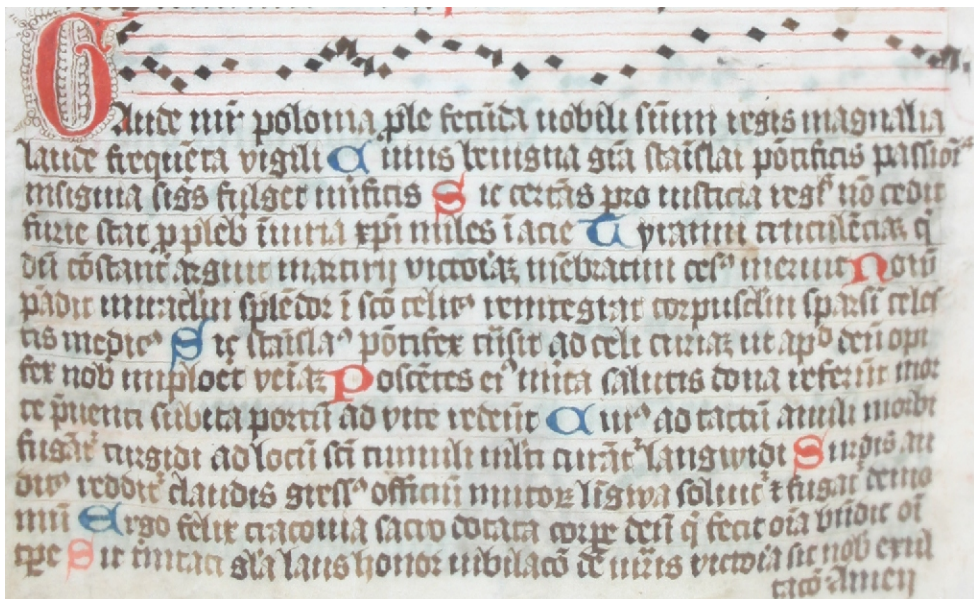 Gaude mr̄ polonia ꝓle fecūda nobili sūmi regis magnalia
laude frequēta vigili Cuius benigna gr̄a stāislai pōtificis passionꝰ
insignia sigs fulget mirificis Sic certās pro iusticia reg nō cedit
furie stat ꝓ pleb iniuria xp̄i miles ī acie Tyranni truculēciaꝫ q̄
dū cōstanter arguit martirii victoriaꝫ mēbratim cesꝰ meruit Nouū
pādit miraclm̄ splēdor ī scō celitꝰ reintegrat corpusclm̄ sparsū celes
tis medicꝰ Sic stāislaꝰ pōtifex trāsit ad celi curiaꝫ ut apd deū opi
fex nob īmploret veniaꝫ Poscētes eiꝰ mīta salutis dona referūt mor
te p̄uenti subita portū ad vite redeūt Cuiꝰ ad tactū anuli morbi
fugāt turgidi ad locū scī tumuli mlti curāt langwidi Surdis au
ditꝰ reddit claudis gressꝰ officiū mutoꝝ līgwa soluit ⁊ fugat demo
niū Ergo felix cracouia sacro dotata corꝑe deū q̄ fecit oīa bn̄dic oī
tꝑe Sit trinitati gl̄a laus honor iubilacō de mr̄is victoria sit nob exul
tacō Amen